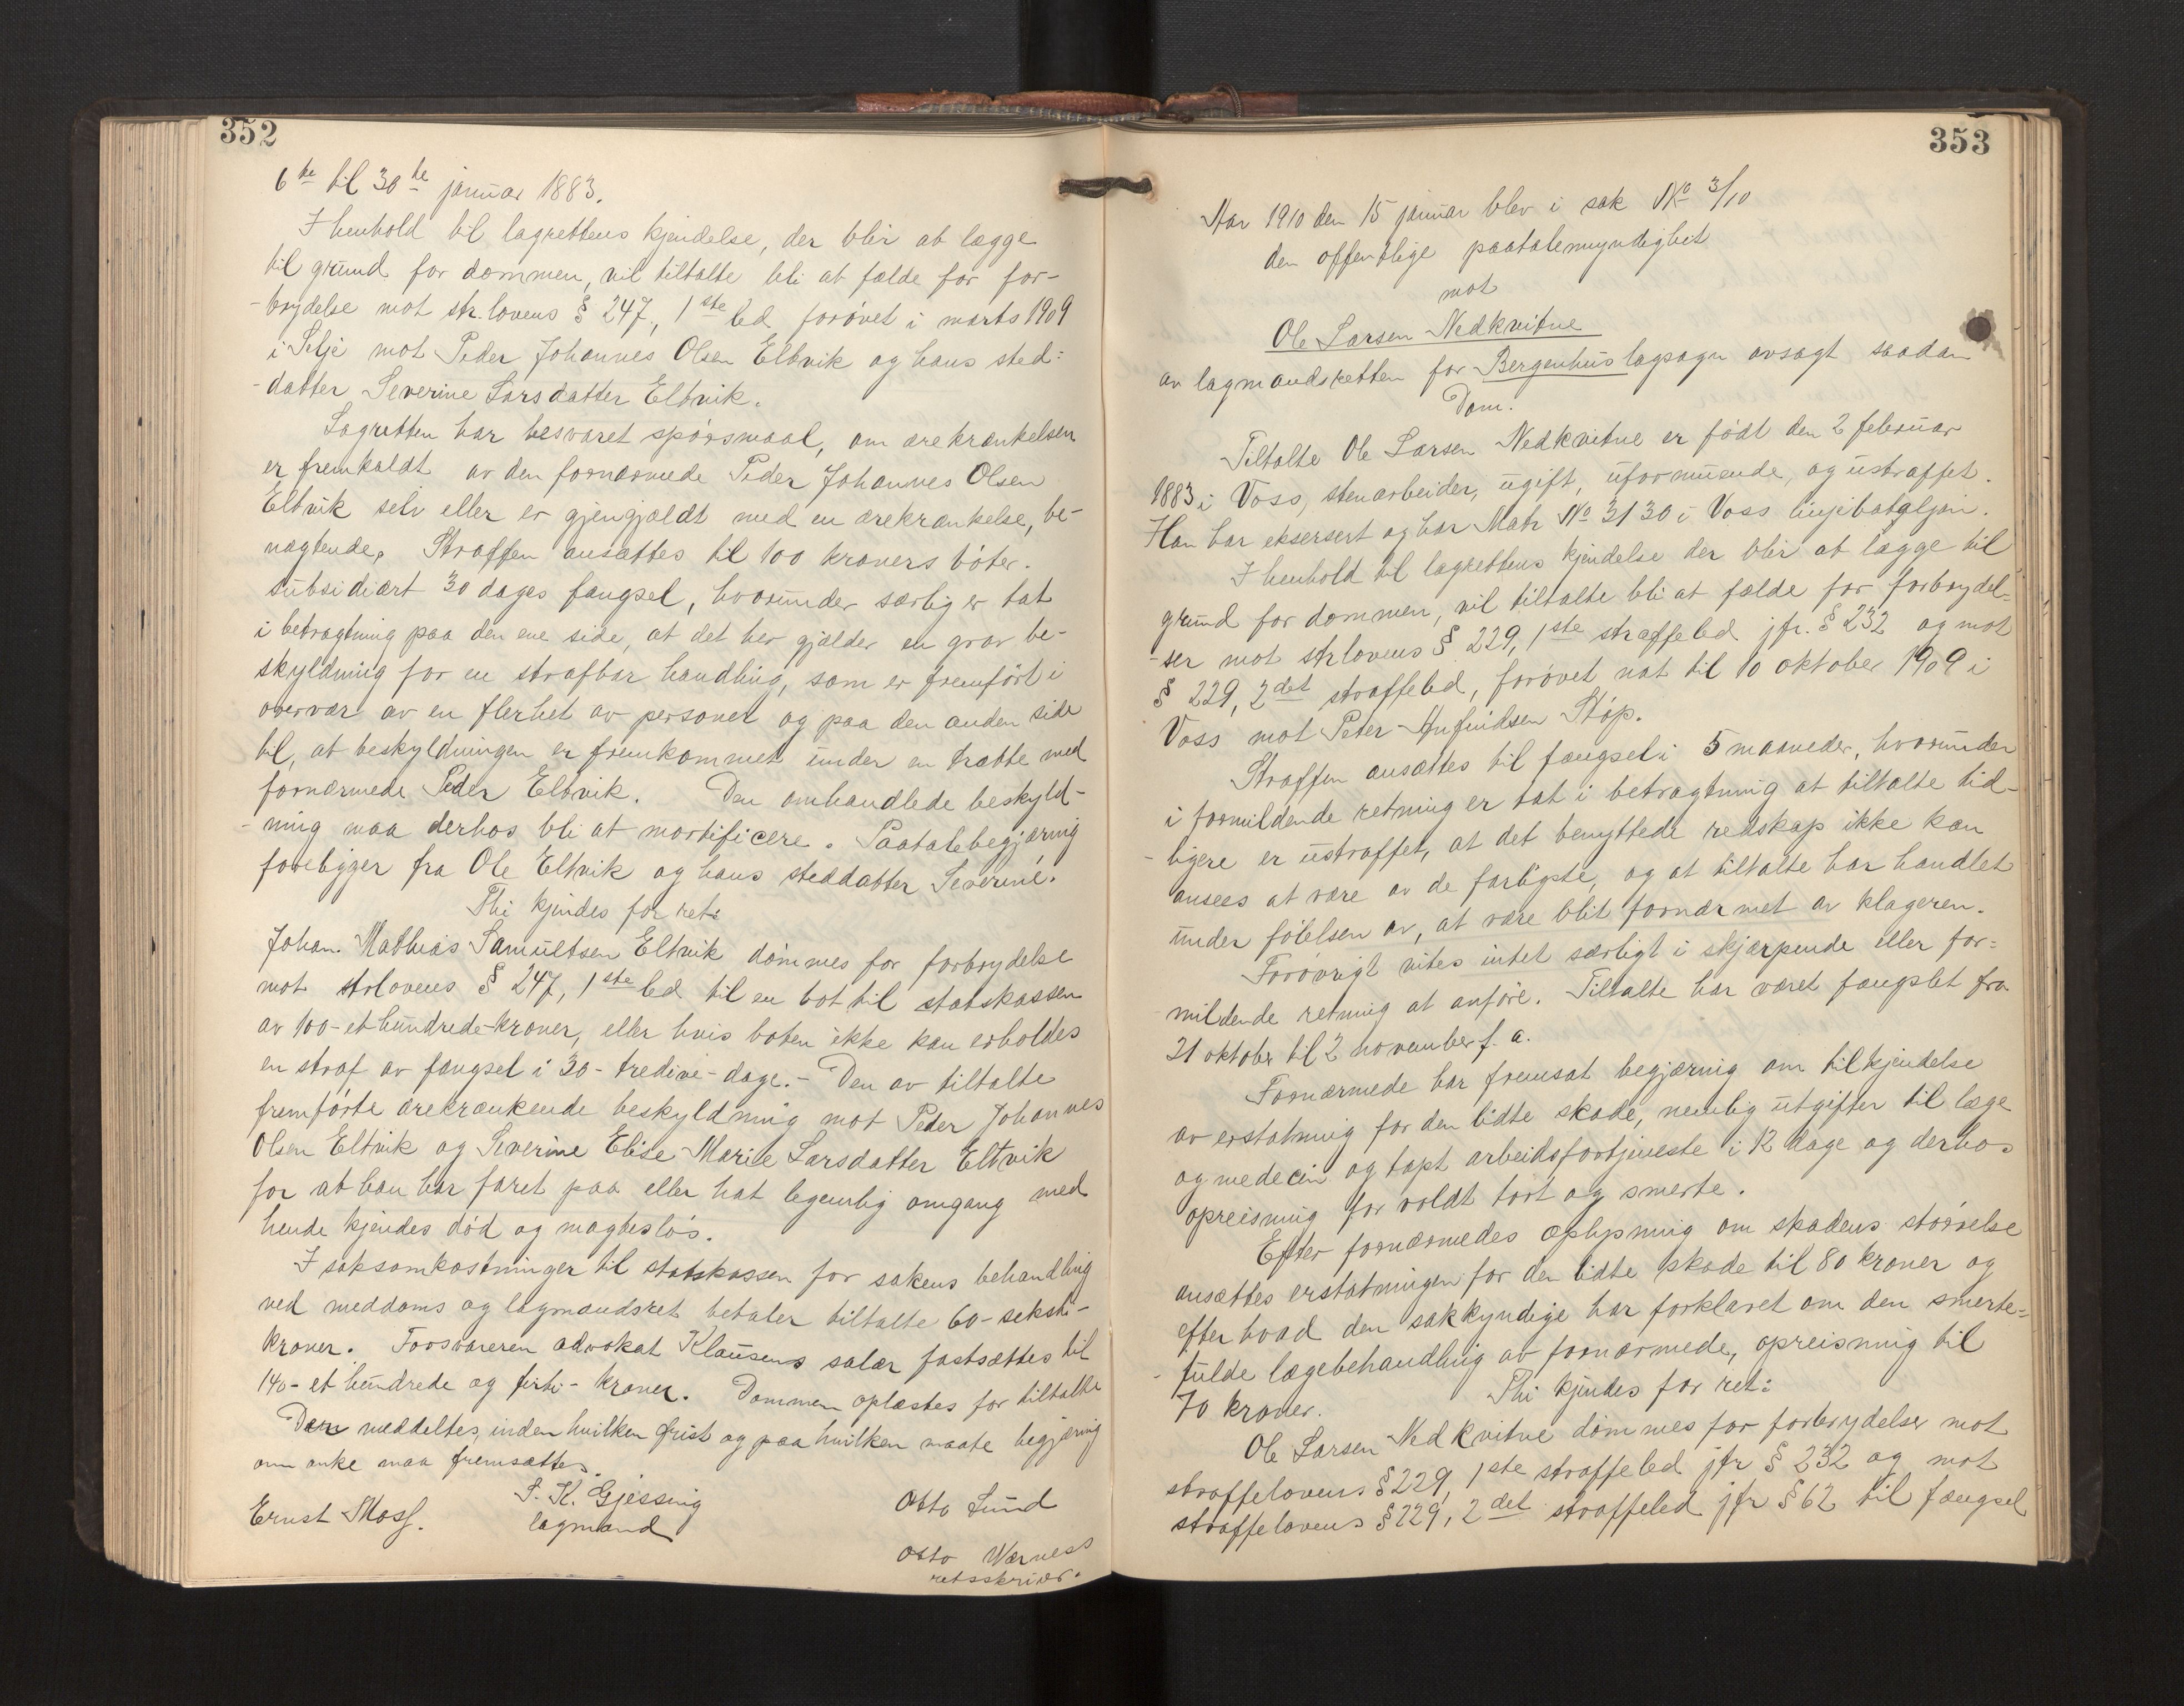 352
6te til 30te januar 1883.
I henhold til lagrettens kjendelse, der blir at lægge
til grund for dommen, vil tiltalte bli at fælde for for-
-brydelse mot str.lovens § 247, 1ste led forøvet i marts 1909
i Selje mot Peder Johannes Olsen Eltvik og hans sted=
-datter Severine Larsdatter Eltvik.
Lagretten har besvaret spørsmaal, om ærekrænkelsen
er fremkaldt av den fornærmede Peder Johannes Olsen
Eltvik selv eller er gjengjældt med en ærekrænkelse, be-
nægtende. Straffen ansættes til 100 kroners bøter.
subsidiært 30 dages fængsel, hvorunder særlig er tat
i betragtning paa den ene side, at det her gjælder en grov be-
skyldning for en strafbar handling, som er fremført i
overvær av en flerhet av personer og paa den anden side
til, at beskyldningen er fremkommet under en trætte med
fornærmede Peder Eltvik. Den omhandlede beskyld-
-ning maa derhos bli at mortificere. Paatalebegjæring
foreligger fra Ole Eltvik og hans steddatter Severine.
Thi kjendes for ret:
Johan Mathias Samueltsen Eltvik dømmes for forbrydelse
mot strlovens § 247, 1ste led til en bot til statskassen
av 100-et hundrede-kroner, eller hvis boten ikke kan erholdes
en straf av fængsel i 30-tredive-dage.- Den av tiltalte
fremførte ærekrænkende beskyldning mot Peder Johannes
Olsen Eltvik og Severine Elise Marie Larsdatter Eltvik
for at han har faret paa eller hat legemlig omgang med
hende kjendes død og magtesløs.
I saksomkostninger til statskassen for sakens behandling
ved meddoms og lagmandsret betaler tiltalte 60-seksti-
kroner. Forsvareren advokat Klausens salær fastsættes til
140-et hundrede og firti-kroner. Dommen oplæstes for tiltalte
Den meddeltes, inden hvilken frist og paa hvilken maate begjæring
om anke maa fremsættes.
Ernst Moss. S. K. Gjessing Otto Lund
lagmand
Otto Wærness
retsskriver.
353
Aar 1910 den 15 januar blev i sak No 3/10
den offentlige paatalemyndighet
mot
Ole Larsen Nedkvitne
av lagmandsretten for Bergenhus lagsogn avsagt saadan
Dom.
Tiltalte Ole Larsen Nedkvitne er født den 2 februar
1883 i Voss, stenarbeider, ugift, uformuende, og ustraffet.
Han har eksersert og har Matr No 3130 i Voss linjebataljon.
I henhold til lagrettens kjendelse der blir at lægge til
grund for dommen, vil tiltalte bli at fælde for forbrydel-
-ser mot strlovens § 229, 1ste straffeled jfr. § 232 og mot
§ 229, 2det straffeled, forøvet nat til 10 oktober 1909 i
Voss mot Peter Anfindsen Støp.
Straffen ansættes til fængsel i 5 maaneder, hvorunder
i formildende retning er tat i betragtning at tiltalte tid-
-ligere er ustraffet, at det benyttede redskap ikke kan
ansees at være av de farligste, og at tiltalte har handlet
under følelsen av, at være blit fornærmet av klageren.
Forøvrigt vites intet særligt i skjærpende eller for=
mildende retning at anføre. Tiltalte har været fængslet fra
21 oktober til 2 november f. a.
Fornærmede har fremsat begjæring om tilkjendelse
av erstatning for den lidte skade, nemlig utgifter til læge
og medecin og tapt arbeidsfortjeneste i 12 dage og derhos
opreisning for voldt tort og smerte.
Efter fornærmedes oplysning om skadens størrelse
ansættes erstatningen for den lidte skade til 80 kroner og
efter hvad den sakkyndige har forklaret om den smerte-
-fulde lægebehandling av fornærmede, opreisning til
70 kroner. Thi kjendes for ret:
Ole Larsen Nedkvitne dømmes for forbrydelse mot
straffelovens § 229, 1ste straffeled jfr § 232 og mot
straffelovens § 229, 2det straffeled jfr § 62 til fængsel